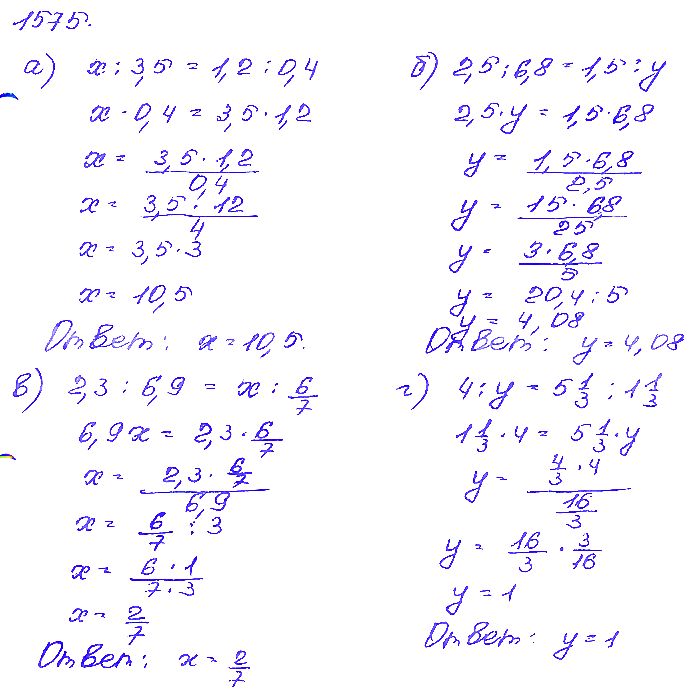 1575.
а) x : 3,5 = 1,2 : 0,4
x · 0,4 = 3,5 · 1,2
x = 3,5 · 1,2 / 0,4
x = 3,5 · 12 / 4
x = 3,5 · 3
x = 10,5
Ответ: x = 10,5.
б) 2,5 : 6,8 = 1,5 : y
2,5 · y = 1,5 · 6,8
y = 1,5 · 6,8 / 2,5
y = 15 · 6,8 / 25
y = 3 · 6,8 / 5
y = 20,4 : 5
y = 4,08
Ответ: y = 4,08
в) 2,3 : 6,9 = x : 6/7
6,9 x = 2,3 · 6/7
x = 2,3 · 6/7 / 6,9
x = 6/7 : 3
x = 6 · 1 / 7 · 3
x = 2/7
Ответ: x = 2/7
г) 4 : y = 5 1/3 : 1 1/3
1 1/3 · 4 = 5 1/3 · y
y = 4/3 · 4 / 16/3
y = 16/3 · 3/16
y = 1
Ответ: y = 1